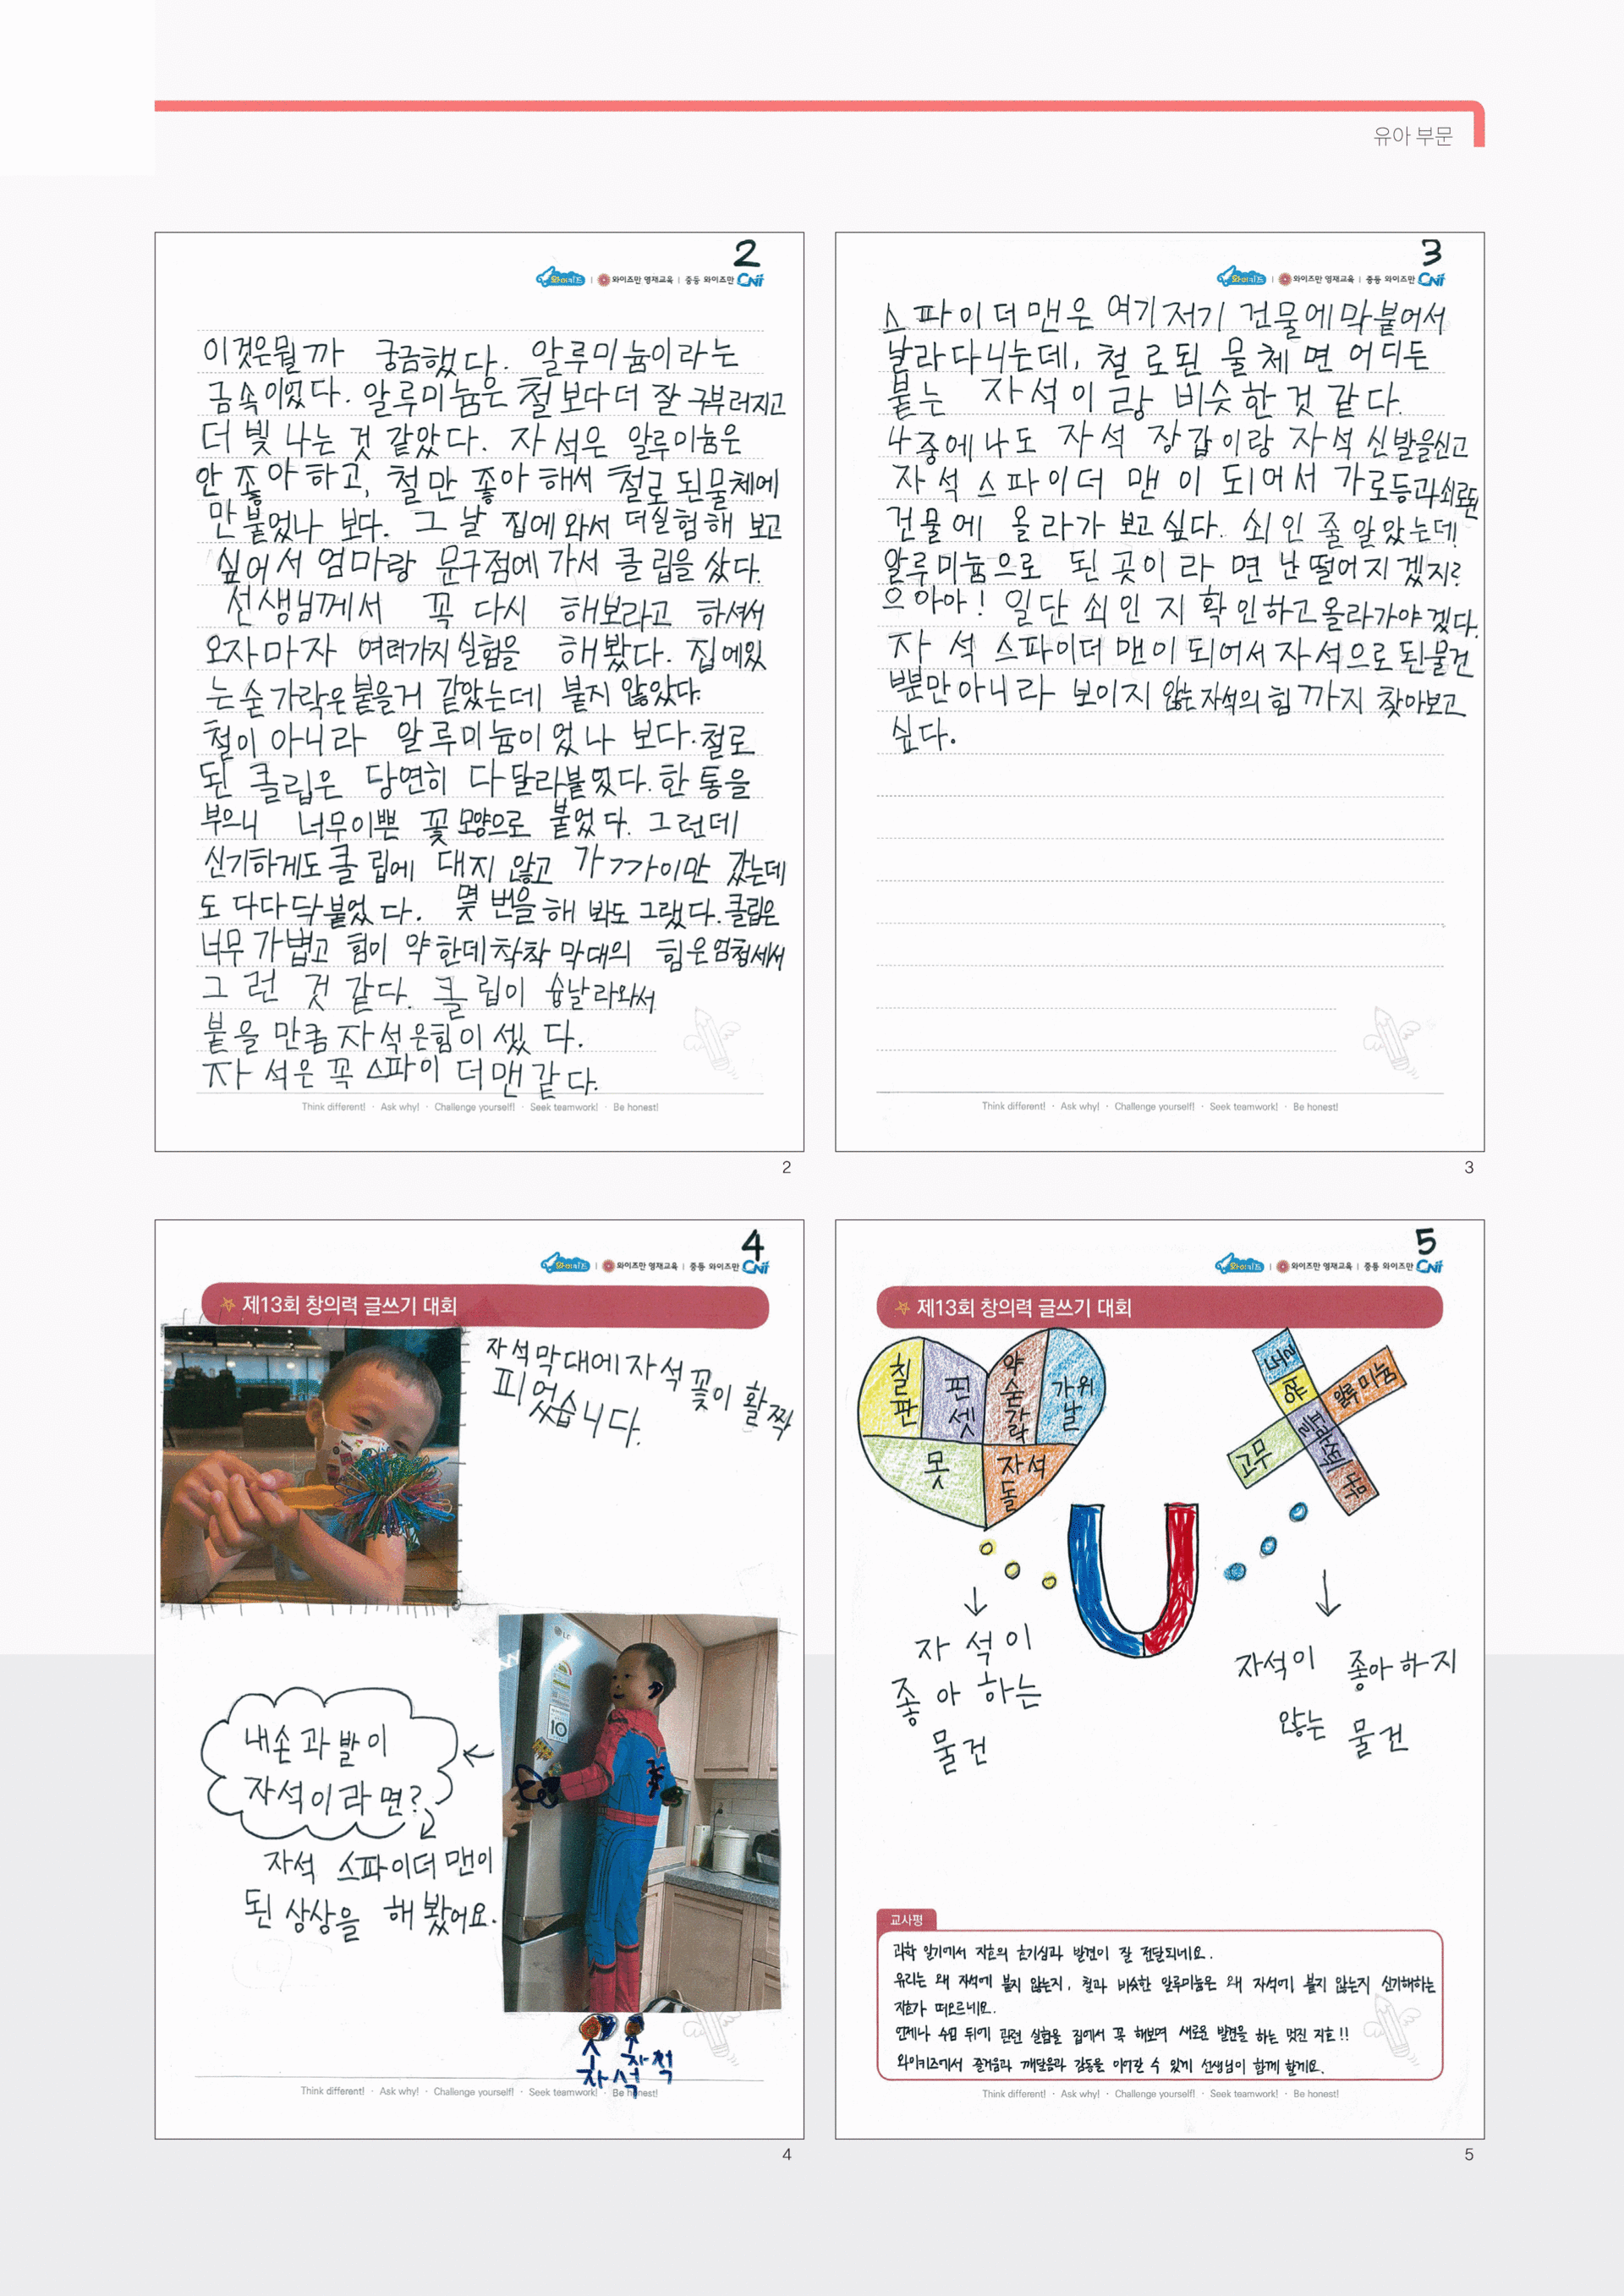 유아 부문
2
와이키즈 | 와이즈만 영재교육 | 중등 와이즈만 CNI
이것은뭘까 궁금했다. 알루미늄이라는
금속이었다. 알루미늄은 철보다더 잘 구부러지고
더 빛 나는 것 같았다. 자석은 알루미늄은
안 좋아하고, 철만 좋아해서 철로 된물체에
만붙었나 보다. 그 날 집에 와서 더실험해 보고
싶어서 엄마랑 문구점에 가서 클립을 샀다.
선생님께서 꼭 다시 해보라고 하셔서
오자마자 여러가지 실험을 해봤다. 집에있
는 숟가락은붙을거 같았는데 붙지 않았다.
철이 아니라 알루미늄이었나 보다. 철로
된 클립은 당연히 다달라붙었다. 한 통을
부으니 너무이쁜 꽃 모양으로 붙었다. 그런데
신기하게도 클립에 대지 않고 가까이만 갔는데
도 다다닥붙었다. 몇 번을 해 봐도 그랬다. 클립은
너무 가볍고 힘이 약한데 착착 막대의 힘은엄청세서
그런 것 같다. 클립이 슝날라와서
붙을 만큼 자석은힘이 셌다.
자석은 꼭 스파이더맨 같다.
Think different! · Ask why! · Challenge yourself! · Seek teamwork! · Be honest!
2
3
와이키즈 | 와이즈만 영재교육 | 중등 와이즈만 CNI
스파이더맨은 여기저기 건물에막붙어서
날라다니는데, 철로된 물체면 어디든
붙는 자석이랑 비슷한것 같다.
나중에나도 자석 장갑이랑 자석 신발을신고
자석스파이더 맨이 되어서 가로등과쇠로된
건물에 올라가 보고싶다. 쇠인 줄 알았는데
알루미늄으로 된 곳이라면 난 떨어지겠지?
으아아! 일단 쇠인지 확인하고올라가야겠다.
자석 스파이더맨이 되어서 자석으로 된물건
뿐만아니라 보이지 않는 자석의 힘까지 찾아보고
싶다.
Think different! · Ask why! · Challenge yourself! · Seek teamwork! · Be honest!
3
4
와이키즈 | 와이즈만 영재교육 | 중등 와이즈만 CNI
제13회 창의력 글쓰기 대회
자석막대에자석꽃이 활짝
피었습니다.
LG
10
내손과발이
자석이라면?
자석 스파이더맨이
된 상상을 해봤어요.
자석
자석
Think different! · Ask why! · Challenge yourself! · Seek teamwork! · Be honest!
4
5
와이키즈 | 와이즈만 영재교육 | 중등 와이즈만 CNI
제13회 창의력 글쓰기 대회
칠판
핀셋
약숟가락
가위날
못
자석돌
알루미늄
플라스틱
고무
나무
자석이
좋아하는
물건
자석이 좋아하지
않는 물건
교사평
과학 일기에서 지호의 호기심과 발견이 잘 전달되네요.
유리는 왜 자석에 붙지 않는지, 철과 비슷한 알루미늄은 왜 자석에 붙지 않는지 신기해하는
지호가 떠오르네요.
언제나 수업 뒤에 관련 실험을 집에서 꼭 해보며 새로운 발견을 하는 멋진 지호!!
와이키즈에서 즐거움과 깨달음과 감동을 이어갈 수 있게 선생님이 함께 할게요.
Think different! · Ask why! · Challenge yourself! · Seek teamwork! · Be honest!
5